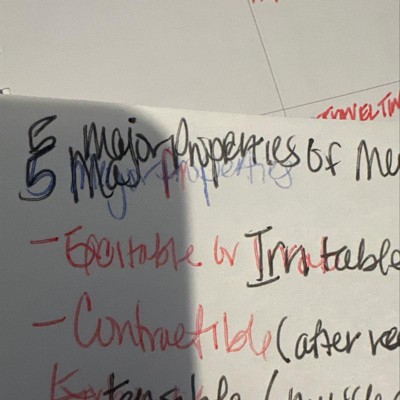 5 Major Properties of
5 Major Properties
- Excitable or Irritable
- Contractible (after
Extensible (muscle